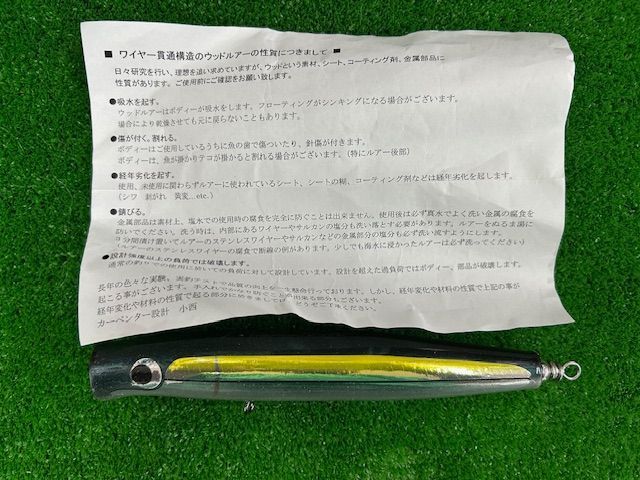 ■ ワイヤー貫通構造のウッドルアーの性質につきまして ■
日々研究を行い、理想を追い求めていますが、ウッドという素材、シート、コーティング剤、金属部品に
性質があります。ご使用前にご確認をお願い致します。
●吸水を起す。
ウッドルアーはボディーが吸水をします。フローティングがシンキングになる場合がございます。
場合により乾燥させても元に戻らないこともあります。
●傷が付く。割れる。
ボディーはご使用しているうちに魚の歯で傷ついたり、針傷が付きます。
ボディーは、魚が掛かりテコが掛かると割れる場合がございます。（特にルアー後部）
●経年劣化を起す。
使用、未使用に関わらずルアーに使われているシート、シートの糊、コーティング剤などは経年劣化を起します。
（シワ 剥がれ 黄変…etc.）
●錆びる。
金属部品は素材上、塩水での使用時の腐食を完全に防ぐことは出来ません。使用後は必ず真水でよく洗い金属の腐食を
防いでください。洗う時は、内部にあるワイヤーやサルカンの塩分も洗い落とす必要があります。ルアーをぬるま湯に
３分間漬け置いてルアーのステンレスワイヤーやサルカンなどの金属部分の塩分も必ず洗い流すようにします。
（ルアーのステンレスワイヤーの腐食で断線の例があります。少しでも海水に浸かったルアーは必ず洗ってください）
●設計強度以上の負荷では破壊します。
通常の釣りでの使用に於いての負荷に対して設計しています。設計を超えた過負荷ではボディー、部品が破壊します。
長年の色々な実験、実釣テストで品質の向上を一生懸命行っております。しかし、経年変化や材料の性質で上記の事が
起こる事がございます。
経年変化や材料の性質で起る部分に
カーペンター設計 小西